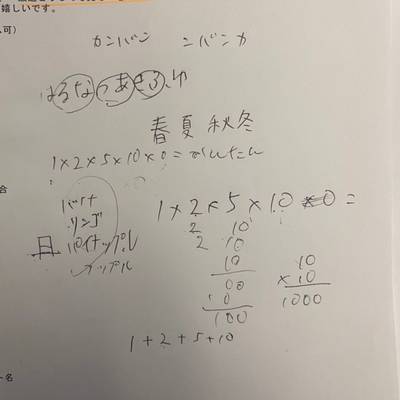 嬉しいです。
可)
カンバン ンバンカ
はるなつあきふゆ
春夏秋冬
1×2×5×10×0=かんたん
合
バナナ
リンゴ
パイナップル
アップル
1×2×5×10×0=
2 10
2 10
10
00
10
100
10
×10
1000
1+2+5+10
ー名